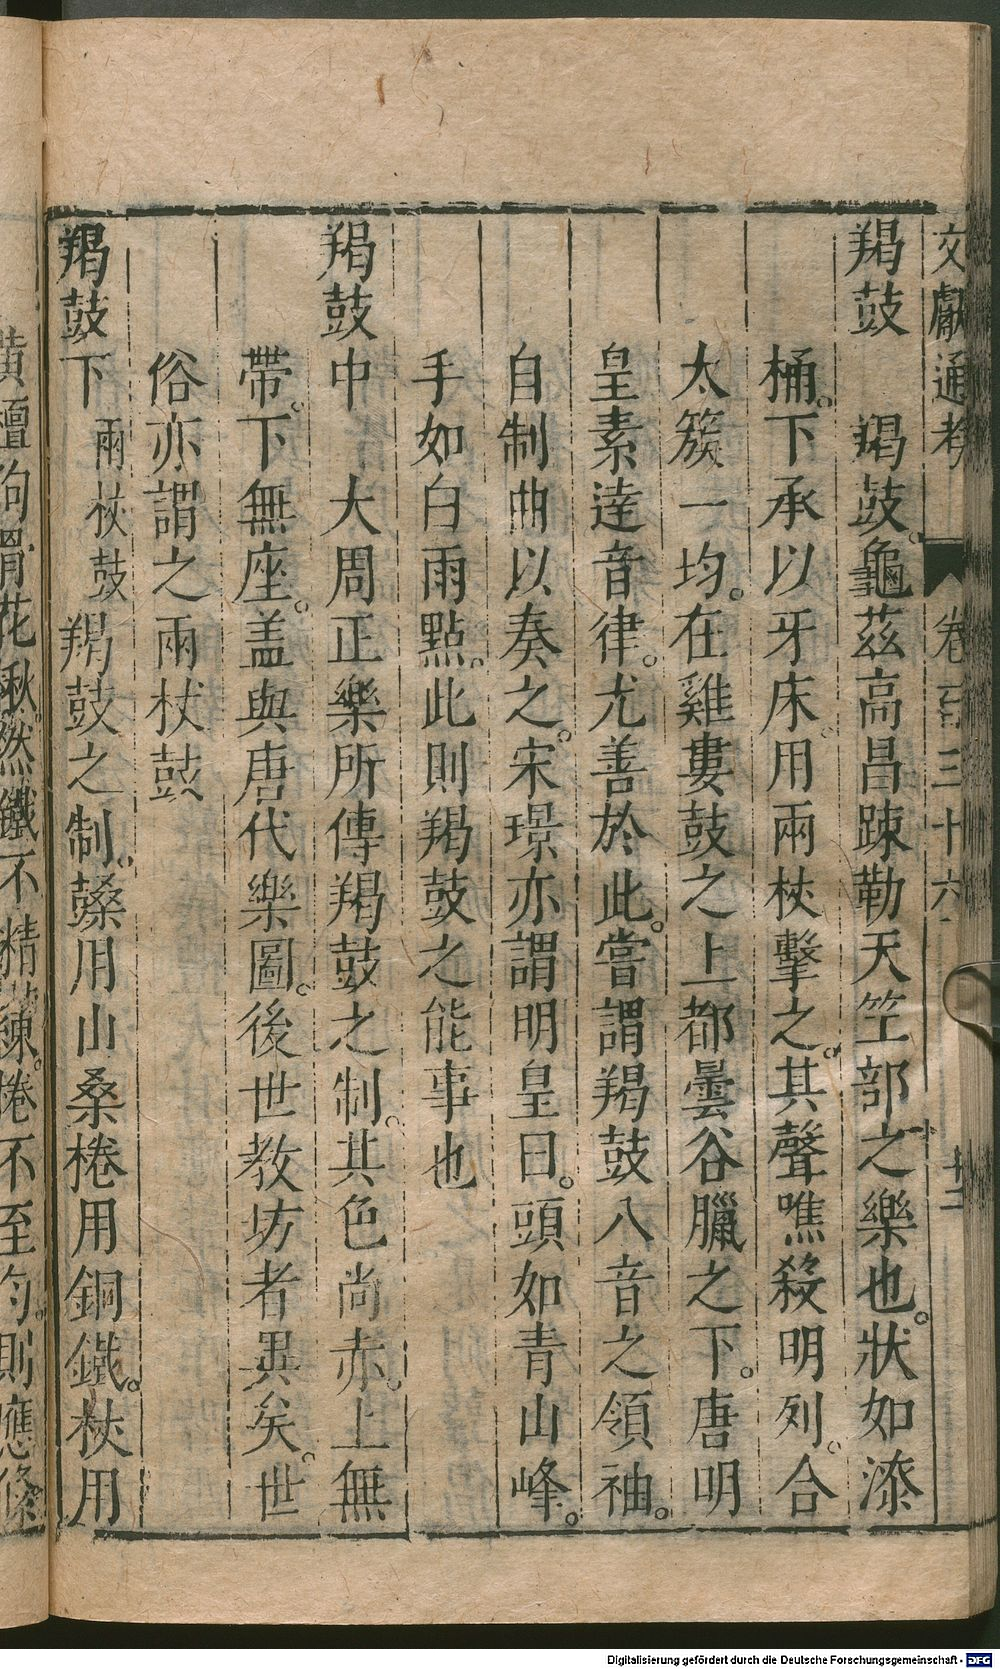 文獻通考 卷一百三十六 十二
羯鼓 羯鼓。龜茲高昌踈勒天竺部之樂也。狀如漆
桶。下承以牙床。用兩杖擊之。其聲噍殺明列。合
太簇一均。在雞婁鼓之上都曇谷臘之下。唐明
皇素達音律。尤善於此。嘗謂羯鼓八音之領袖。
自制曲以奏之。宋璟亦謂明皇曰。頭如青山峰。
手如白雨點。此則羯鼓之能事也
羯鼓中 大周正樂所傳羯鼓之制。其色尚赤。上無
帶。下無座。盖與唐代樂圖。後世教坊者異矣。世
俗亦謂之兩杖鼓
羯鼓下 兩杖鼓 羯鼓之制。鼜用山桑棬用銅鐵。杖用
黃檀狗骨花楸。然鐵不精練。棬不至匀。則應條
Digitalisierung gefördert durch die Deutsche Forschungsgemeinschaft - DFG